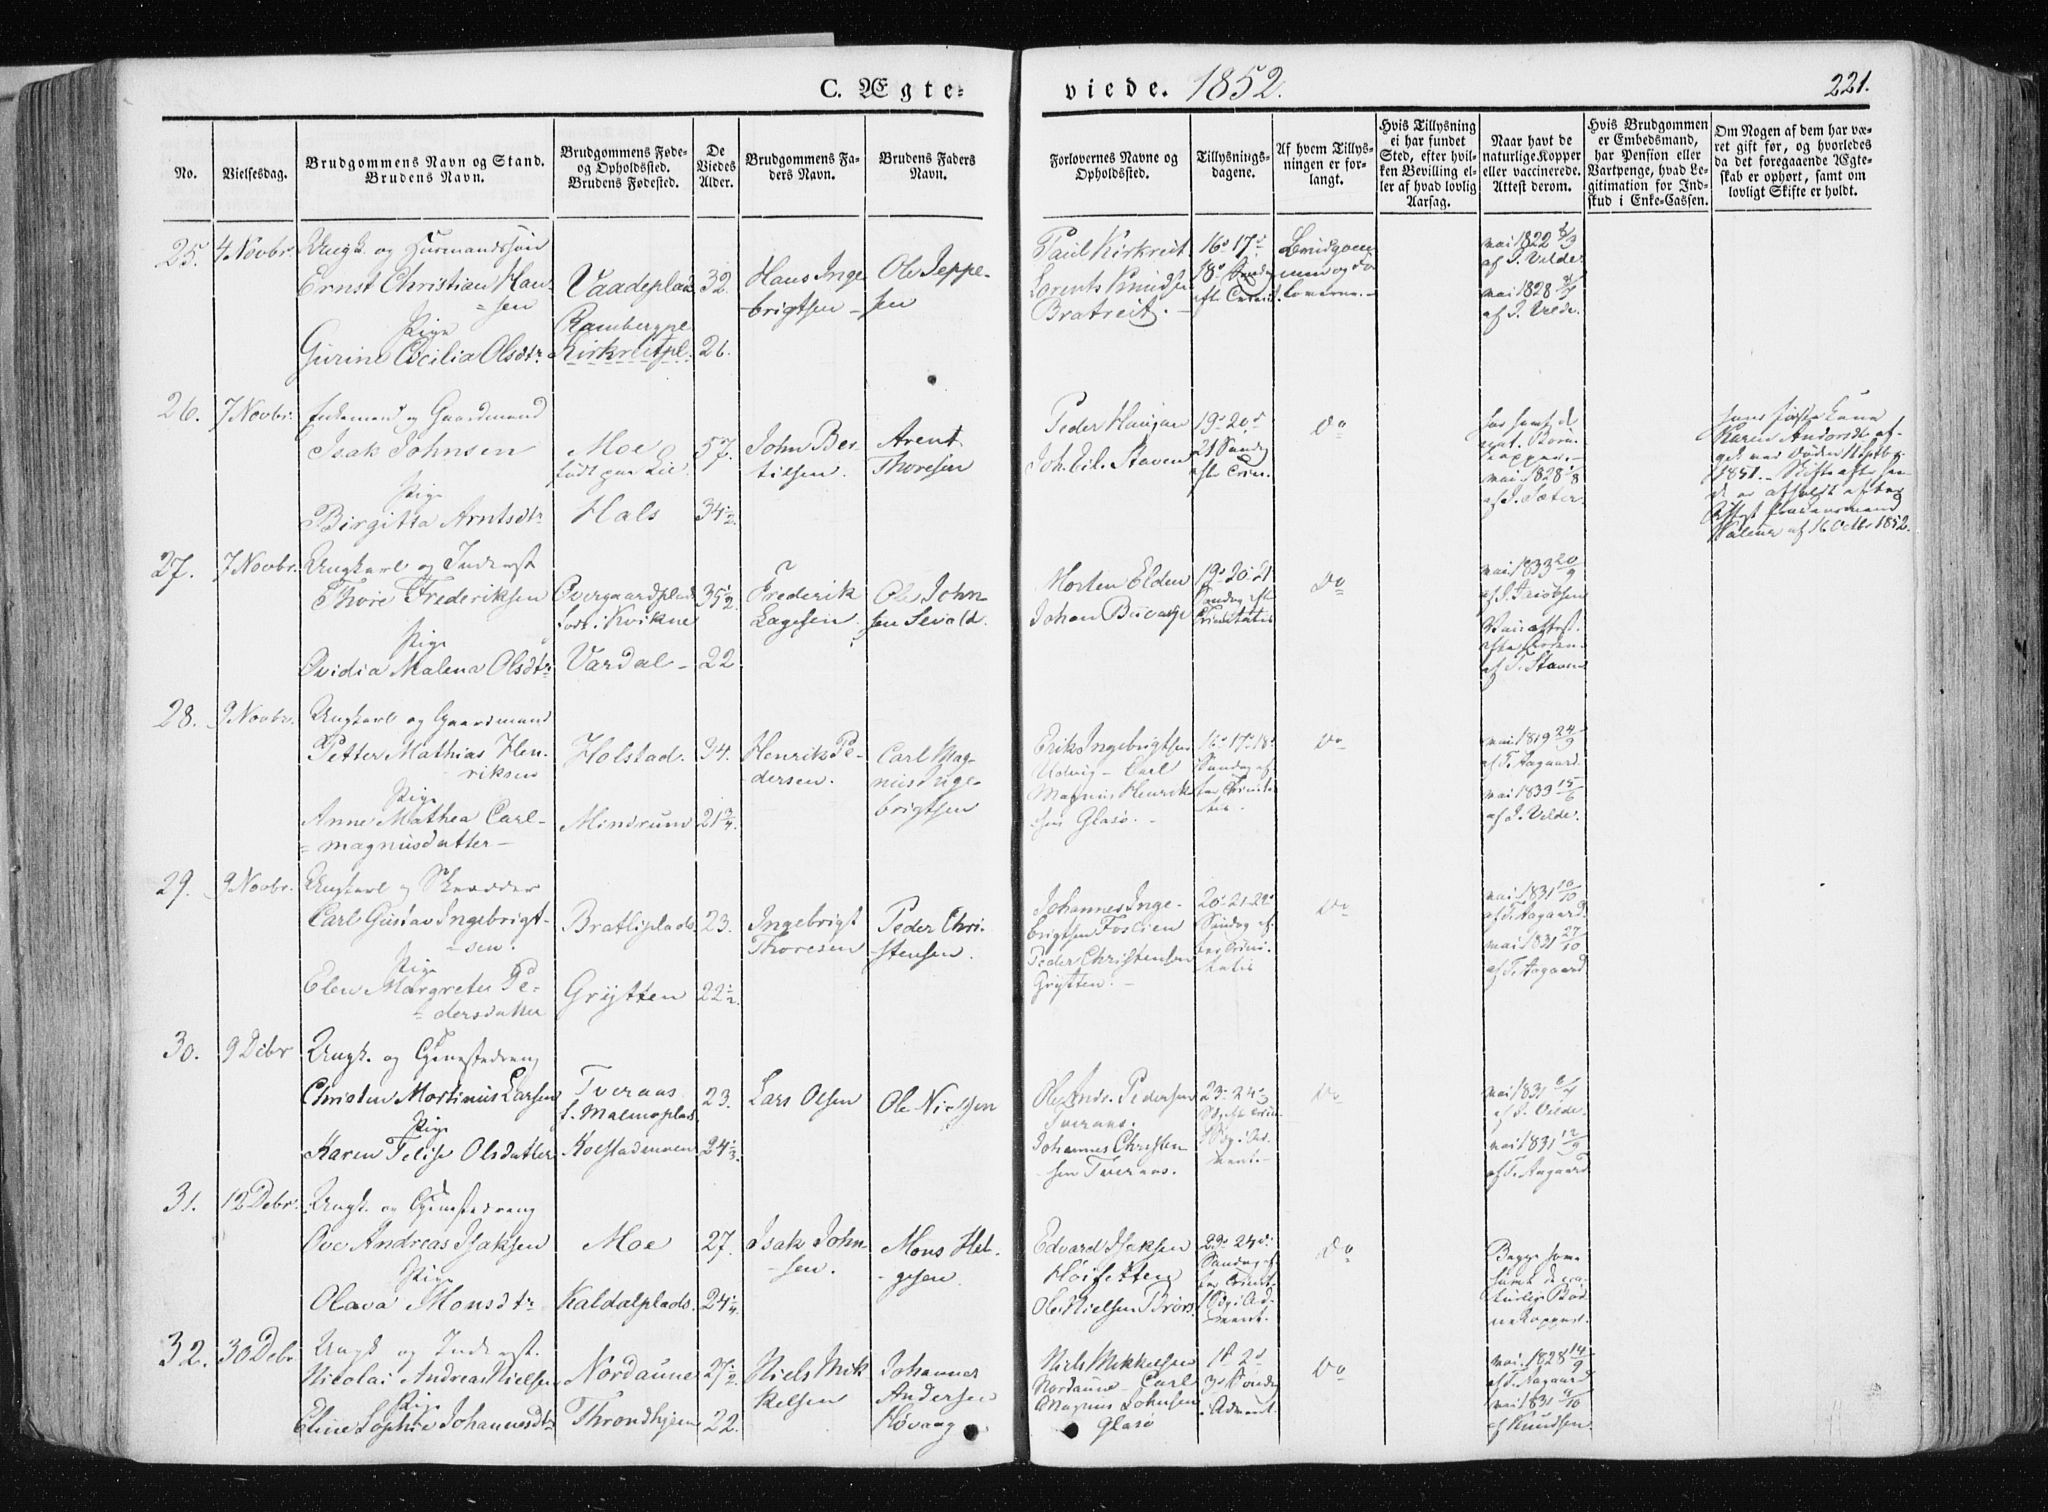 C. Ægte-
viede. 1852.
221.
No.
Vielsesdag.
Brudgommens Navn og Stand.
Brudens Navn.
Brudgommens Føde-
og Opholdssted.
Brudens Fødested.
De
Viedes
Alder.
Brudgommens Fa-
ders Navn.
Brudens Faders
Navn.
Forlovernes Navne og
Opholdssted.
Tillysnings-
dagene.
Af hvem Tillys-
ningen er for-
langt.
Hvis Tillysning
ei har fundet
Sted, efter hvil-
ken Bevilling el-
ler af hvad lovlig
Aarsag.
Naar havt de
naturlige Kopper
eller vaccinerede.
Attest derom.
Hvis Brudgommen
er Embedsmand,
har Pension eller
Vartpenge, hvad Le-
gitimation for Ind-
skud i Enke-Cassen.
Om Nogen af dem har væ-
ret gift før, og hvorledes
da det foregaaende Ægte-
skab er ophørt, samt om
lovligt Skifte er holdt.
25. 4 Novbr. Ungk. og Huusmandssøn
Ernst Christian Han-
sen
Pige
Gurine Cecilia Olsdtr
Vaadeplads
Rambergpl
Kirkreitpl.
32.
26.
Hans Inge
brigtsen
Ole Jeppe-
sen
Paul Kirkreit
Lorents Knudsen
Bratreit.
16d 17d
18d Søndag
efter Trinit.
Brudgom
men og Fo
loverne.
vai 1822
af J. Velde
vai 1828
af J. Velde.
26. 7 Novbr. Enkemand og Gaardmand
Isak Johnsen
Pige
Birgitta Arntsdtr
Moe
født paa Lie
Hals
57.
34 1/2.
John Ber-
tilsen.
Arent
Thoresen
Peder Haugan
Joh. Eil. Staven
19d 20d
21 Søndag
efter Trin.
Do
har havt d
nat. Børn
kopper.
vai 1828
af J. Sæter
hans første Kone
Karen Andersdtr af-
1851.
af 16 Octbr 1852.
27. 7 Novbr. Ungkarl og Inderst
Thore Frederiksen
Pige
Ovidia Malena Olsdtr
Overgaardplads
født i Kvikne
Vardal
35 1/2
22
Frederik
Lagesen
Ole John-
sen Sevold.
Morten Elden
Johan
19d 20d 21
Søndag eft
Trinitatis
Do
vai 1833 20/9
af J. Jacobsen
af T. Staven
28. 9 Novbr. Ungkarl og Gaardmand
Petter Mathias Hen-
riksen
Pige
Anne Mathea Carl-
magnusdatter
Holstad.
Mindrum
34.
21 3/4.
Henrik Pe-
dersen.
Carl Mag-
nus Inge-
brigtsen
Erik Ingebrigtsen
Udvig – Carl
Magnus Henrik
sen Glasø.
16d 17d 18d
Søndag ef
ter Trinita
tis.
Do
vai 1819 24/9
af T. Aagaard.
vai 1833 15/6
af J. Velde.
29. 9 Novbr. Ungkarl og Skrædder
Carl Gustav Ingebrigt-
sen.
Pige
Elen Margrete Pe-
dersdatter
Bratliplads
Grytten
23.
22 1/2.
Ingebrigt
Thoresen
Peder Chri-
stensen.
Johannes Inge-
brigtsen Foslien
Peder Christensen
Grytten.
20d 21 22d
Søndag ef-
ter Trini-
tatis
Do
vai 1831 10/10
af T. Aagaard.
vai 1831 27/10
af T. Aagaard.
30. 9 Debr Ungk. og Tjenestedreng
Christen Martinus Larsen
Pige
Karen Felise Olsdatter
Tveraas
f. Malmoplads
Kolstadennen
23.
24 1/3.
Lars Olsen
Ole Nielsen
Ole Andr. Pedersen
Tveraas.
Johannes Christen
sen Tveraas.
23d 24d
Do
vai 1831
af J. Velde.
vai 1831 12/9
af T. Aagaard
31. 12 Debr. Ungk. og Tjenestedreng
Ove Andreas Isaksen
Pige
Olava Monsdtr
Moe
Kaldalplads
27.
24 1/4.
Isak John-
sen.
Mons Hel-
gesen.
Edvard Isaksen
Høiseten
Ole Nielsen Brørs
23d 24d
Søndag ef
ter Trinit.
1 Sdg i Ad-
vent.
Do
Begge have
havt de na-
turlige Bør
nekopper.
32. 30 Debr Ungk og Inderst.
Nicolai Andreas Nielsen
Pige
Eline Sophie Johannesdtr
Nordaune
Throndhjem
27 1/2.
22.
Niels Mik
kelsen
Johannes
Andersen
Høvaag
Niels Mikkelsen
Nordaune – Carl
Magnus Johnsen
Glasø
1d 2d
3d Søndag
i Advent.
Do
vai 1828 14/9
af T. Aagaard
vai 1831
af Knudsen.